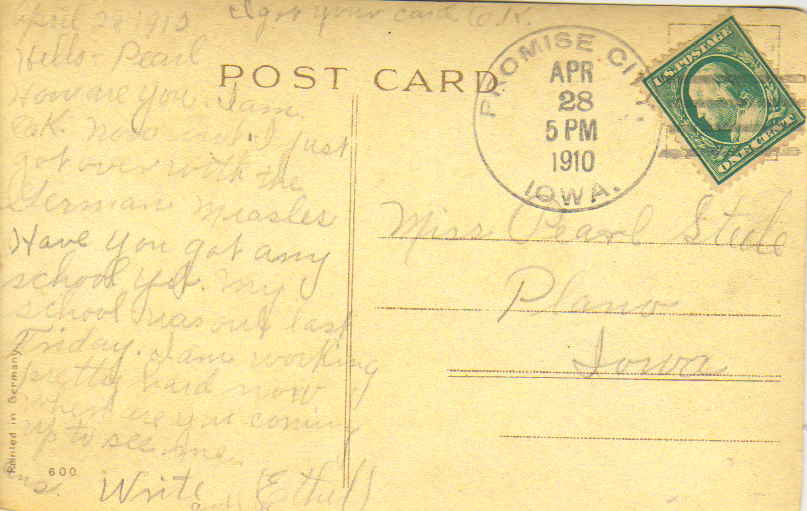 April 28 1910
I got your card O.K.
Hello-Pearl
How are you. I am
O.K. now and I just
got over with the
German Measles
Have you got any
school yet. My
school was out last
Friday. I am working
pretty hard now
When are you coming
up to see me.
Ans. Write (Ethel)
POST CARD
PROMISE CITY
APR
28
5 PM
1910
IOWA.
U.S. POSTAGE
ONE CENT
Miss Pearl
Plano
Iowa
Printed in Germany
600